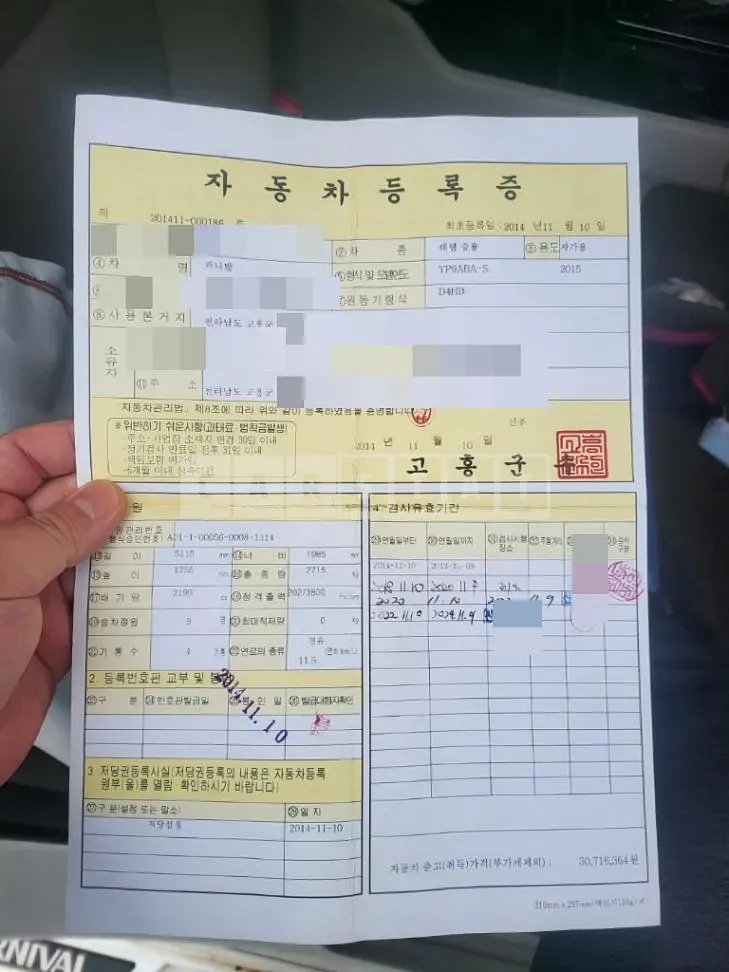 자동차등록증
제 201411-000186 호
최초등록일 : 2014 년 11 월 10 일
②차 종 대형 승용 ③용도 자가용
④차 명 카니발 YP9ABA-S 2015
⑦원동기형식 D4HB
⑧사용본거지 전라남도 고흥군
소유자
⑪주 소 전라남도 고흥군
자동차관리법」 제8조에 따라 위와 같이 등록하였음을 증명합니다
※위반하기 쉬운사항(과태료·범칙금발생)
·주소·사업장 소재지 변경 30일 이내
·정기검사 만료일 전후 31일 이내
·책임보험
·6개월 이내
2014 년 11 월 10 일
고흥군
원
원관리번호
형식승인번호 A01-1-00056-0008-1314
⑬길 이 5115 mm ⑭너 비 1985 mm
⑮높 이 mm ⑯총 중 량 2715 kg
⑰배 기 량 2199 cc ⑱정격출력 202/3800
⑲승차정원 9 명 ⑳최대적재량 0 kg
㉑기 통 수 4 기통 ㉒연료의 종류 경유
11.5
2 등록번호판 교부 및
2014.11.10
㉓구 분 ㉔번호판발급일 봉 인 일 ㉖발급대행자확인
3 저당권등록사실(저당권등록의 내용은 자동차등록
원부(을)를 열람 확인하시기 바랍니다)
㉗구 분(설정 또는 말소) ㉘일 자
저당설정 2014-11-10
4. 검사유효기간
㉙연월일부터 ㉚연월일까지 ㉛검사시행장소 ㉜주행거리 검사구분
2014-11-10
2018 11 10 2020 11 9
2020 11. 10 11. 9
2022 11. 10 2024. 11. 9
자동차 출고(취득)가격(부가세제외) : 30,716,364 원
210mm×297mm
RNIVAL